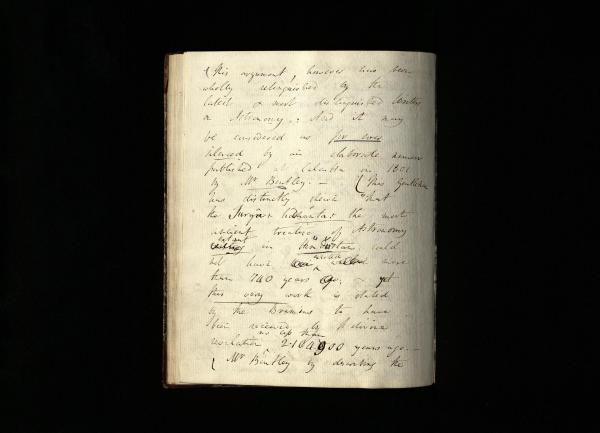 ( This argument, however has been
wholly relinquished by the
latest & most distinguished
on Astronomy: And it may
be considered as for ever
silenced by an elaborate memoir
published at Calcutta in 1801
by Mr Bentley. — ( This Gentleman
has distinctly shewn that
the Surya the most
ancient treatise of Astronomy
extant in could
not have been more
than 740 years ago; & yet
this very work is stated
by the Bramins to have
been received by divine
no less than
revelation 2164900 years ago. —
( Mr Bentley by the